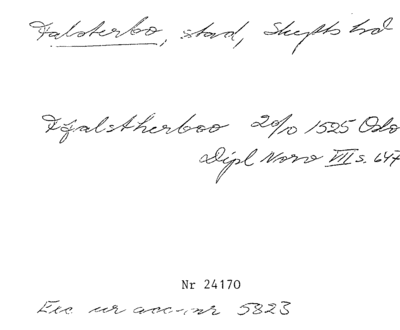 Falsterbo, stad, Skytts hd
Ffalstherboo 20/10 1525 Oslo
Dipl Norv VII s. 647
Nr 24170
Exc ur acc-nr 5823